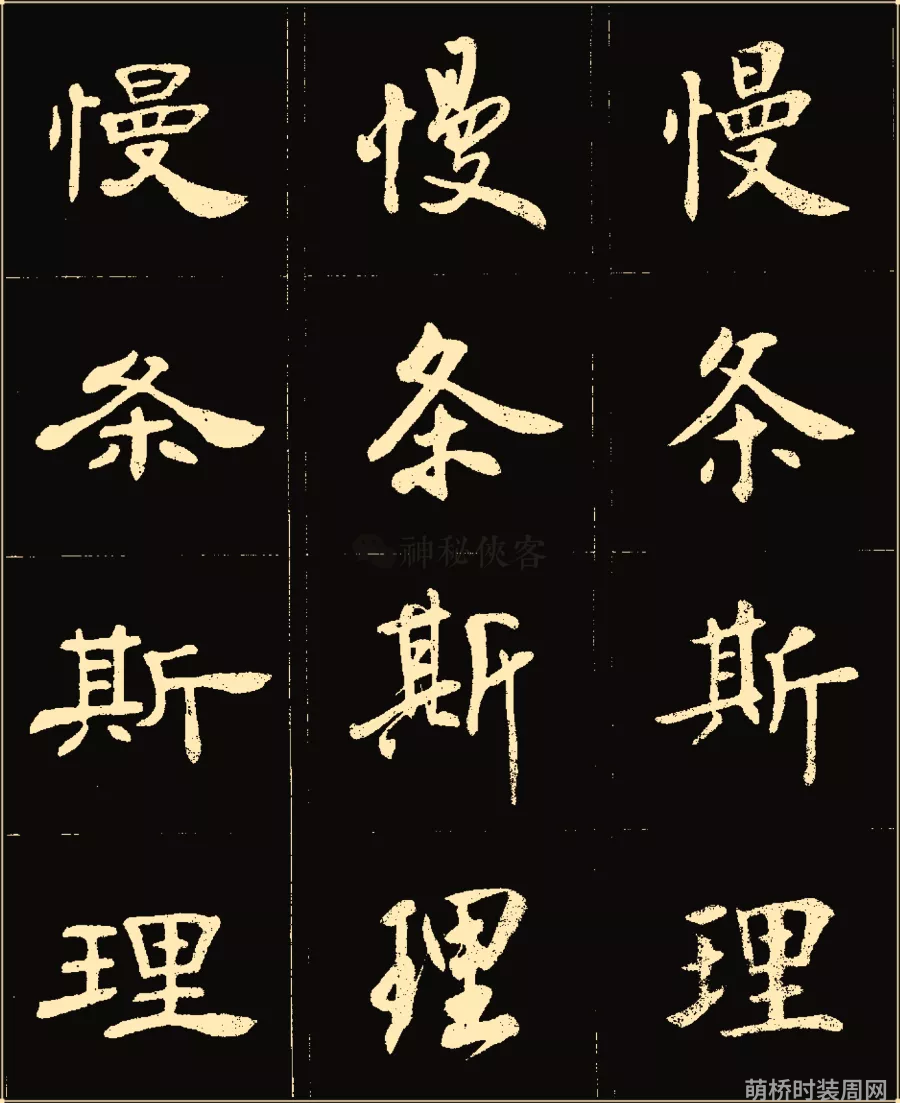 慢慢慢
条条条
神秘侠客
斯斯斯
理理理
萌桥时装周网